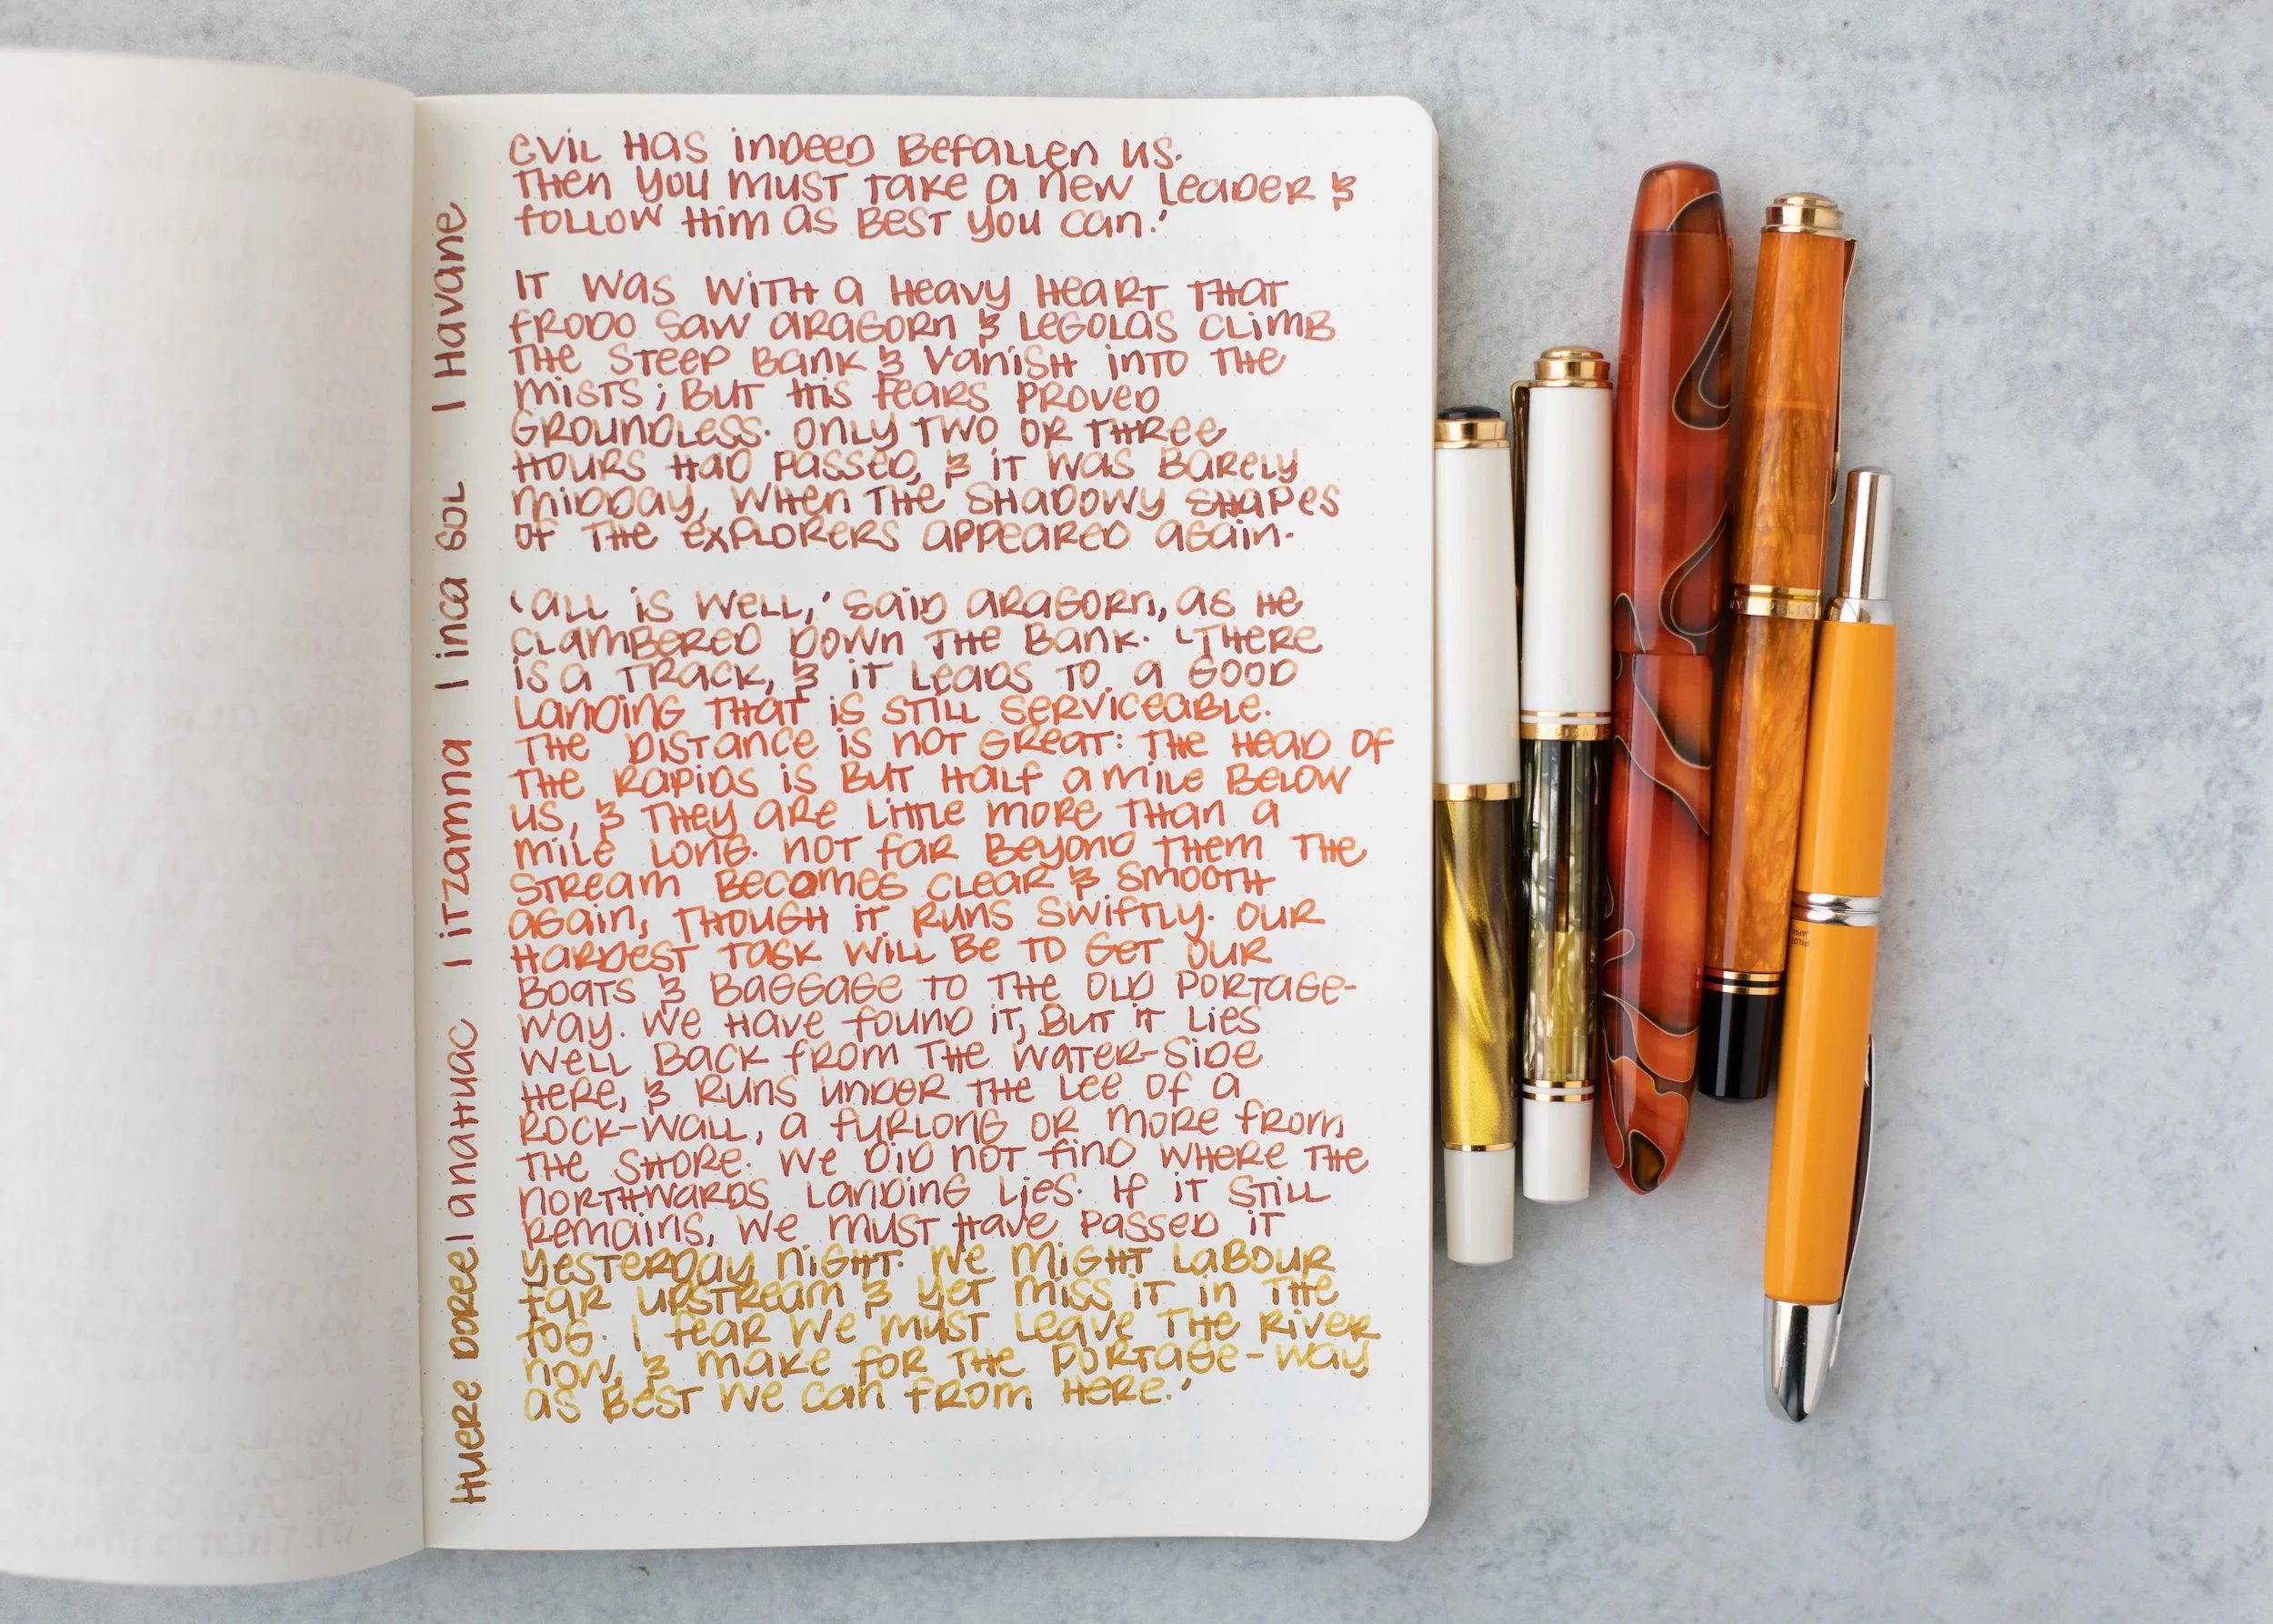 evil has indeed befallen us.
Then you must take a new leader &
follow him as best you can.'
It was with a heavy heart that
Frodo saw Aragorn & Legolas climb
the steep bank & vanish into the
mists; but his fears proved
groundless. Only two or three
hours had passed, & it was barely
midday, when the shadowy shapes
of the explorers appeared again.
'All is well,' said Aragorn, as he
clambered down the bank. 'There
is a track, & it leads to a good
landing that is still serviceable.
The distance is not great: the head of
the rapids is but half a mile below
us, & they are little more than a
mile long. Not far beyond them the
stream becomes clear & smooth
again, though it runs swiftly. Our
hardest task will be to get our
boats & baggage to the old portage-
way. We have found it, but it lies
well back from the water-side
here, & runs under the lee of a
rock-wall, a furlong or more from
the shore. We did not find where the
northwards landing lies. If it still
remains, we must have passed it
yesterday night. We might labour
far upstream & yet miss it in the
fog. I fear we must leave the River
now, & make for the portage-way
as best we can from here.'
Huere Doree | Anahuac | Itzamna | Inca Sol | Havane
PILOT
JAPAN